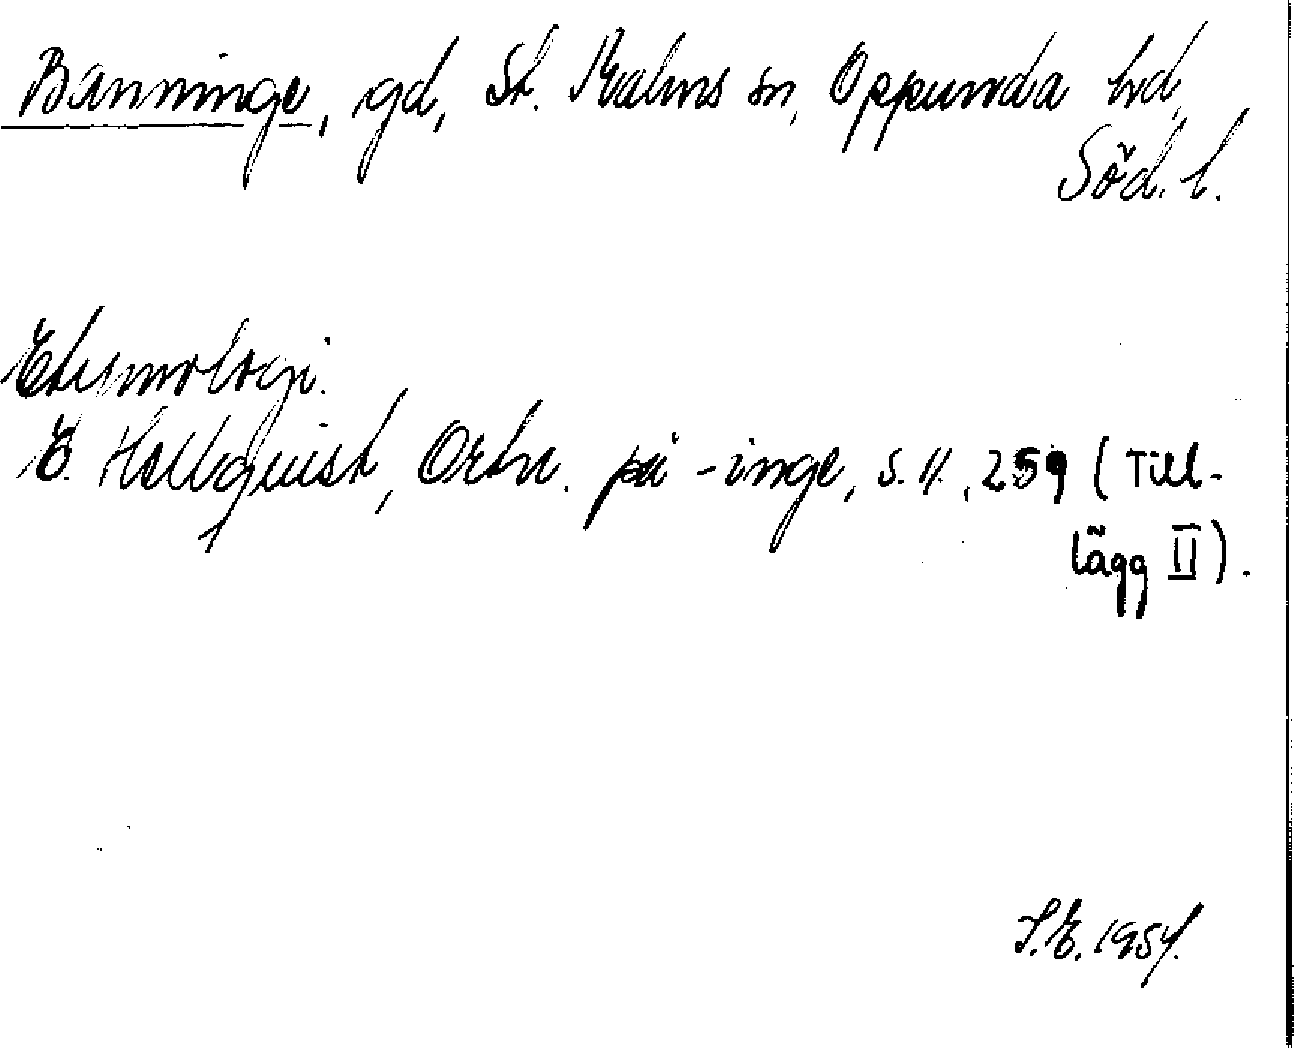 Banninge, gd, St. Malms sn, Oppunda hd,
Söd. l.
Etymologi.
E. Hellquist, Ortn. på -inge, s. 11, 259 (Till-
lägg II).
S.E. 1954.